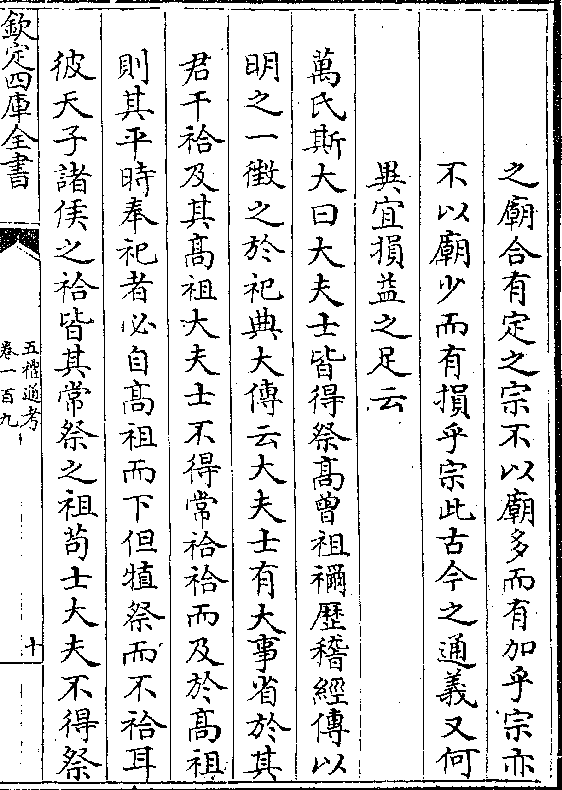 之廟合有定之宗不以廟多而有加乎宗亦
不以廟少而有損乎宗此古今之通義又何
異宜損益之足云
萬氏斯大曰大夫士皆得祭髙曾祖禰歷稽經傳以
明之一徵之於祀典大傳云大夫士有大事省於其
君干祫及其髙祖大夫士不得常祫祫而及於髙祖
則其平時奉祀者必自髙祖而下但犆祭而不祫耳
彼天子諸侯之祫皆其常祭之祖茍士大夫不得祭
欽定四庫全書
五禮通考
卷一百九
十